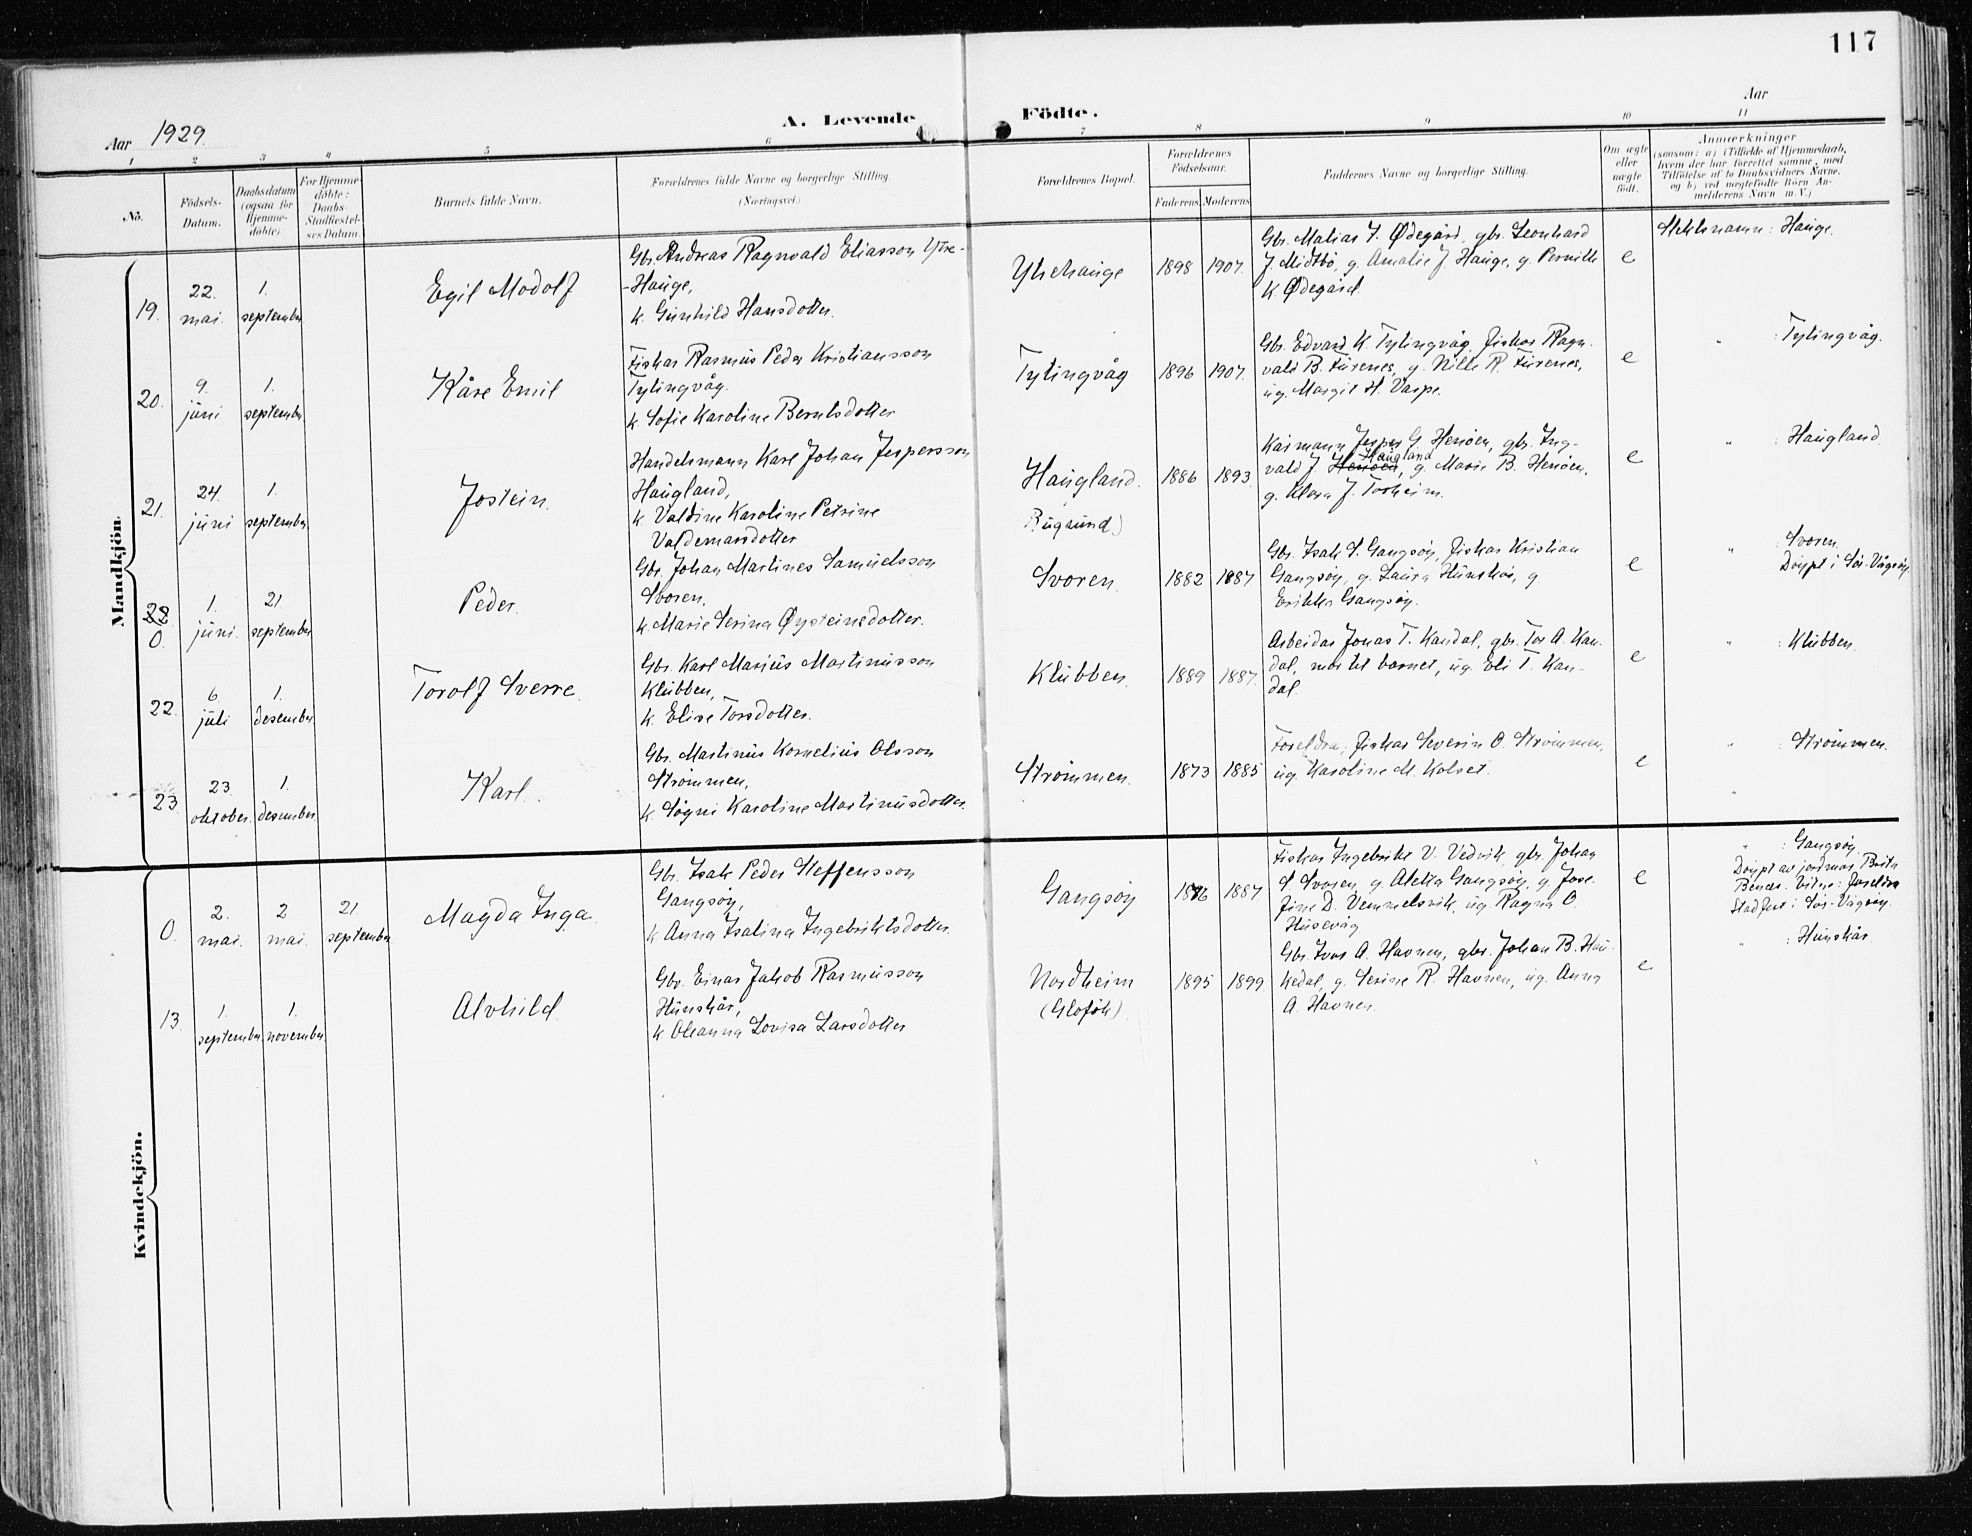 117
A. Levende Födte.
Aar 1929.
Aar
1 2 3 4 5 6 7 8 9 10 11
No.
Födsels-Datum.
Daabsdatum (ogsaa for Hjemme-döbte).
For Hjemme-döbte: Daabs-Stadfæstel-ses Datum.
Barnets fulde Navn.
Forældrenes fulde Navne og borgerlige Stilling.
(Næringsvei.)
Forældrenes Bopæl.
Forældrenes Födselsaar.
Faderens. Moderens.
Faddernes Navne og borgerlige Stilling.
Om ægte eller uægte födt.
Anmærkninger
(saasom: a) i Tilfælde af Hjemmedaab,
hvem der har forrettet samme, med
Tilföielse af to Daabsvidners Navne.
og b) ved uægtefödte Börn An-
melderens Navn m. V.)
Mandkjön.
19.
22. mai.
1. september
Egil Modolf
Gbr. Andreas Ragnvald Eliasson Ytre-
-Hauge,
k. Gunhild Hansdotter.
Ytrehauge
1898 1907.
Gbr. Matias J. Ødegård, gbr. Leonhard
J. Midtbö, g. Amalie J. Hauge, g. Pernille
K. Ødegård.
e
Slektsnamn: Hauge.
20.
9. juni
1. september
Kåre Emil
Fiskar Rasmus Peder Kristiansson
Tytingvåg.
k. Sofie Karoline Berntsdotter
Tytingvåg
1896 1907.
Gbr. Edvard K. Tytingvåg, fiskar Ragn-
vald B. Furenes, g. Nille R. Furenes,
ug. Margit H. Varpe.
e
" : Tytingvåg.
21.
24. juni
1. september
Jostein.
Handelsmann Karl Johan Jespersson
Haugland,
k. Valdine Karoline Petrine
Valdemarsdotter
Haugland.
Rugsund)
1886 1893.
Kårmann Jesper G. Henøen, gbr. Ing-
vald J. Henøen Haugland, g. Marie B. Henøen,
g. Klara J. Torheim.
e
" : Haugland.
22.
0
1. juni.
21. september
Peder.
Gbr. Johan Martines Samuelsson
Svoren,
k. Marie Serina Øysteinsdotter.
Svoren.
1882 1887
Gbr. Isak S. Gangsøy, fiskar Kristian
Gangsøy, g. Laura Hunskår, g
Erikka Gangsøy.
e
" : Svoren.
Døypt i Sør-Vågsøy.
22.
6. juli
1. desember
Torolf Sverre.
Gbr. Karl Marius Martinusson
Klubben,
k. Elise Torsdotter.
Klubben.
1889 1887.
Arbeidar Jonas T. Kandal, gbr. Tor A. Kan-
dal, mor til barnet, ug. Eli T. Kan-
dal
e
" : Klubben.
23.
23. oktober.
1. desember.
Karl.
Gbr. Martinus Kornelius Olsson
Strømmen,
k. Søgni Karoline Martinusdotter.
Strømmen.
1873 1885
Foreldra, fiskar Severin O. Strømmen,
ug. Karoline M. Kolset.
e
" : Strømmen.
Kvindekjön.
0.
2. mai.
2 mai.
21. september
Magda Inga.
Gbr. Isak Peder Steffensson
Gangsøy,
k. Anna Isalina Ingebriktsdotter.
Gangsøy
1887
Fiskar Ingebrikt V. Vedvik, gbr. Johan
S. Svoren, g. Aletta Gangsøy, g. Jose-
fine D. Vemmelsvik, ug. Ragna O.
Husevåg
e
" : Gangsøy.
Døypt av jordmor Brita
Stadfest i Sør-Vågsøy.
13.
1. september
1. november
Alvhild.
Gbr. Einar Jakob Rasmusson
Hunskår,
k. Oleanna Lovisa Larsdotter
Nordheim
1895 1899
Gbr. Ivar A. Havnen, gbr. Johan B. Hau-
kedal, g. Serine R. Havnen, ug. Anna
A. Havnen.
e
" : Hunskår